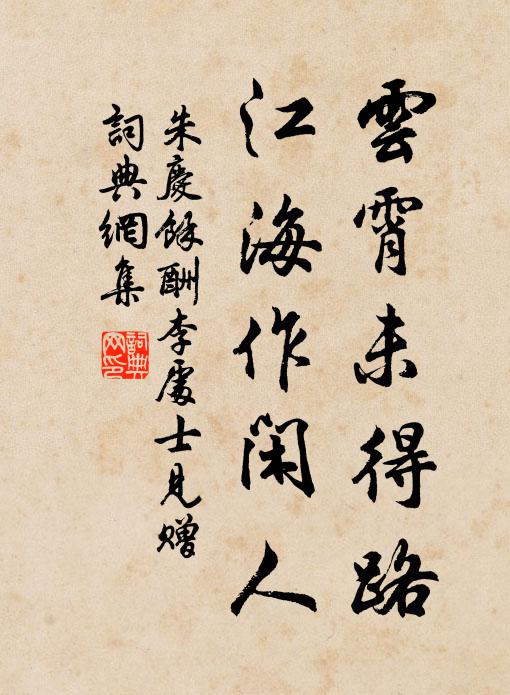 雲霄未得路
江海作閑人
朱慶餘酬李處士見贈
詞典網集
詞典網印